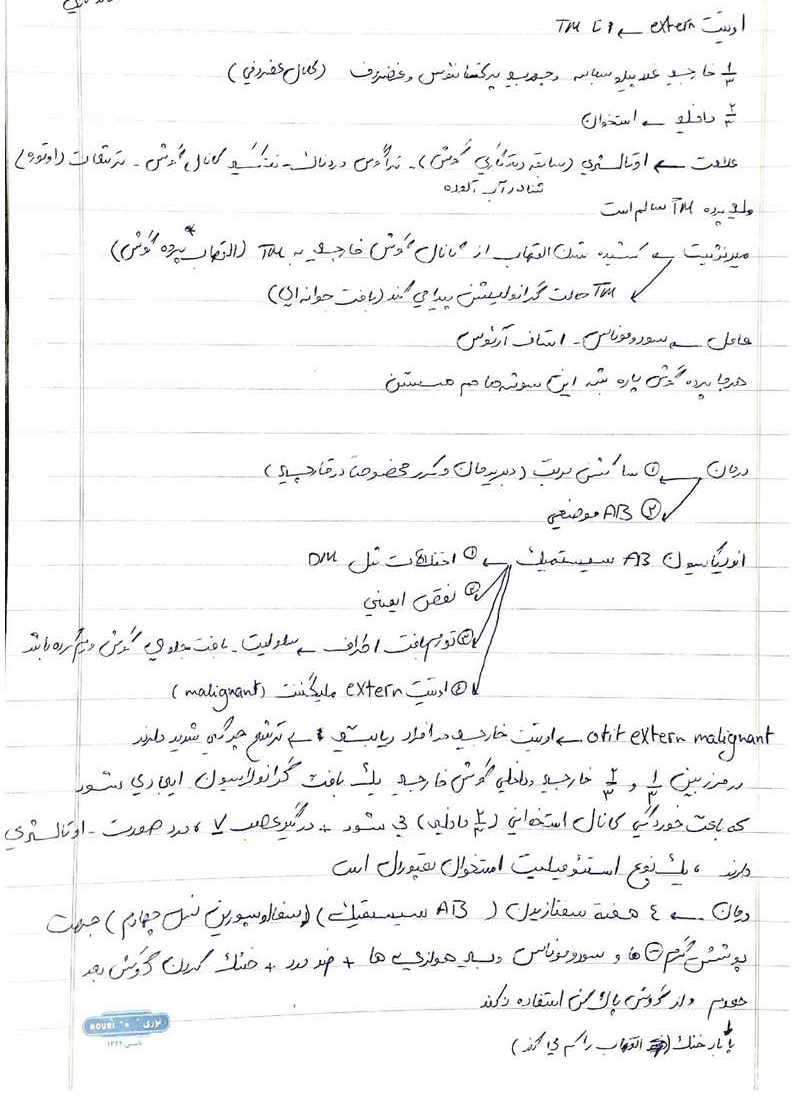 اوتیت extern ← تا TM
1/3 خارجی غلاپیلو سباسه وچسبیده پرکندانتوس وغضروف (کانال غضروفی)
2/3 داخلی ← استخوان
علامت ← اوتالژی (سابقه دستکاری گوش) - تراگوس دردناک - تنگی کانال گوش - ترشحات (اوتوره)
شنا در آب آلوده
ولی پرده TM سالم است
میرنژیت ← کشیده شدن التهاب از کانال گوش خارجی به TM (التهاب پرده گوش)
TM حالت گرانولیشن پیدا می کند (بافت جوانه ای)
عامل ← سودوموناس - استاف آرئوس
هرجا پرده گوش پاره بشه این سوشها هم هستن
درمان ← ① ساکشن مرتب (دبریدمان مکرر مخصوصاً در قارچی)
② AB موضعی
اندیکاسیون AB سیستمیک ← ① اختلالات مثل DM
② نقص ایمنی
③ تورم بافت اطراف ← سلولیت - بافت جلوی گوش ورم کرده باشد
④ اوتیت extern ملیگننت (malignant)
otit extern malignant ← اوتیت خارجی در افراد دیابتی ← ترشح چرکی شدید دارند
در مرز بین 1/3 و 2/3 خارجی وداخلی گوش خارجی یک بافت گرانولاسیون ایجاد می شود
که باعث خوردگی کانال استخوانی (2/3 داخلی) می شود + درگیری عصب ۷، درد صورت - اوتالژی
دارند، یک نوع استئومیلیت استخوان تمپورال است
درمان ← ٤ هفته سفتازیدیم (AB سیستمیک) (سفالوسپورین نسل چهارم) جهت
پوشش گرم ⊖ ها و سودوموناس وبی هوازی ها + ضد درد + خشک کردن گوش بعد
حموم و از گوش پاک کن استفاده نکند
با باد خشک (التهاب را کم می کند)
NOURI نوری
تاسیس ۱۳۲۲